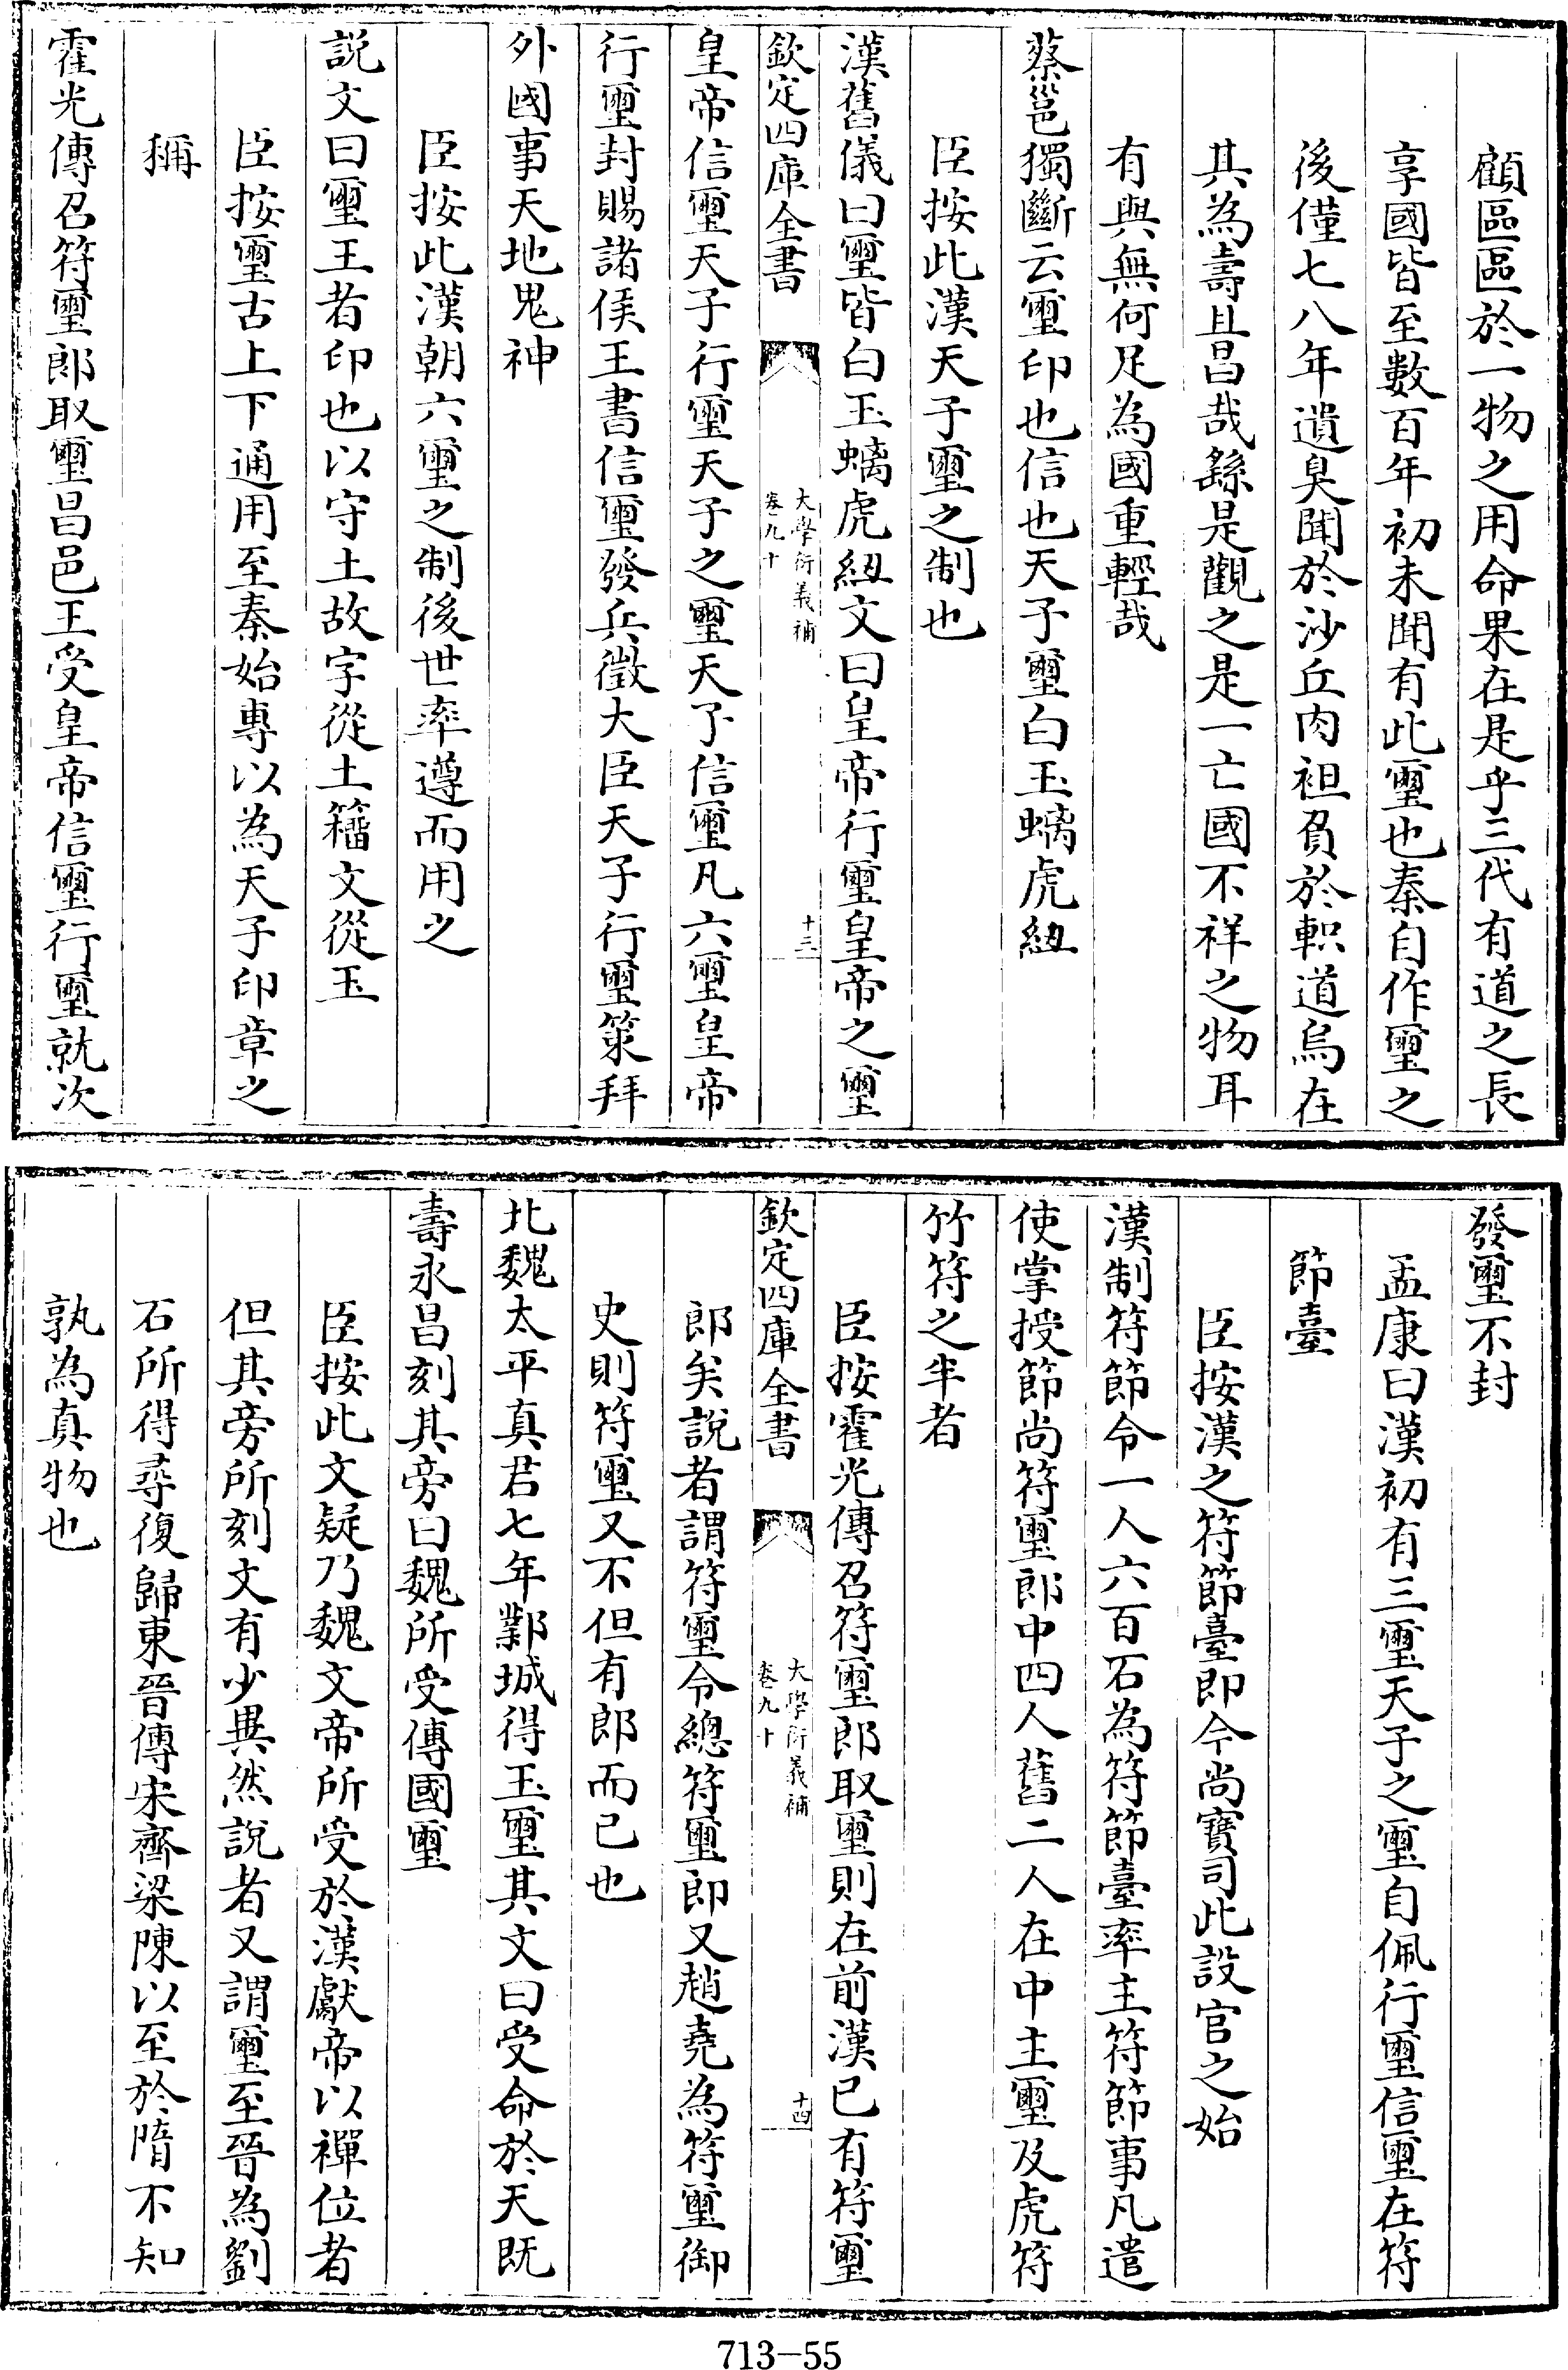 顧區區於一物之用命果在是乎三代有道之長
享國皆至數百年初未聞有此璽也秦自作璽之
後僅七八年遺臭聞於沙丘肉袒負於軹道烏在
其為壽且昌哉繇是觀之是一亡國不祥之物耳
有與無何足為國重輕哉
蔡邕獨斷云璽印也信也天子璽白玉螭虎紐
臣按此漢天子璽之制也
漢舊儀曰璽皆白玉螭虎紐文曰皇帝行璽皇帝之璽
欽定四庫全書
大學衍義補
卷九十
十三
皇帝信璽天子行璽天子之璽天子信璽凡六璽皇帝
行璽封賜諸侯王書信璽發兵徵大臣天子行璽策拜
外國事天地鬼神
臣按此漢朝六璽之制後世率遵而用之
説文曰璽王者印也以守土故字從土籀文從玉
臣按璽古上下通用至秦始專以為天子印章之
稱
霍光傳召符璽郎取璽昌邑王受皇帝信璽行璽就次
發璽不封
孟康曰漢初有三璽天子之璽自佩行璽信璽在符
節臺
臣按漢之符節臺即今尚寶司此設官之始
漢制符節令一人六百石為符節臺率主符節事凡遣
使掌授節尚符璽郎中四人舊二人在中主璽及虎符
竹符之半者
臣按霍光傳召符璽郎取璽則在前漢已有符璽
欽定四庫全書
大學衍義補
卷九十
十四
郎矣說者謂符璽令總符璽郎又趙堯為符璽御
史則符璽又不但有郎而已也
北魏太平真君七年鄴城得玉璽其文曰受命於天既
壽永昌刻其旁曰魏所受傳國璽
臣按此文疑乃魏文帝所受於漢獻帝以禪位者
但其旁所刻文有少異然說者又謂璽至晉為劉
石所得尋復歸東晉傳宋齊梁陳以至於隋不知
孰為真物也
713-55